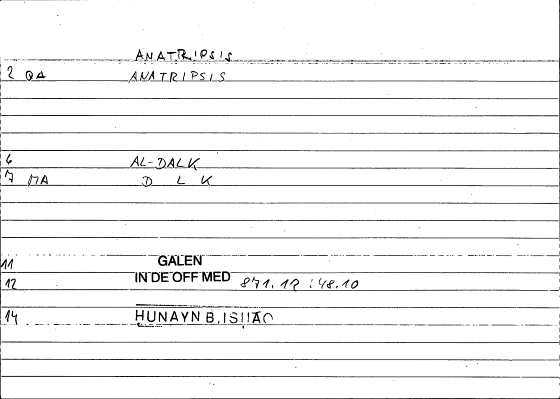 ANATRIPSIS
2 QA ANATRIPSIS
6 AL-DALK
7 MA D L K
11 GALEN
12 IN DE OFF MED 871.12 : 48.10
14 HUNAYN B. ISHAQ